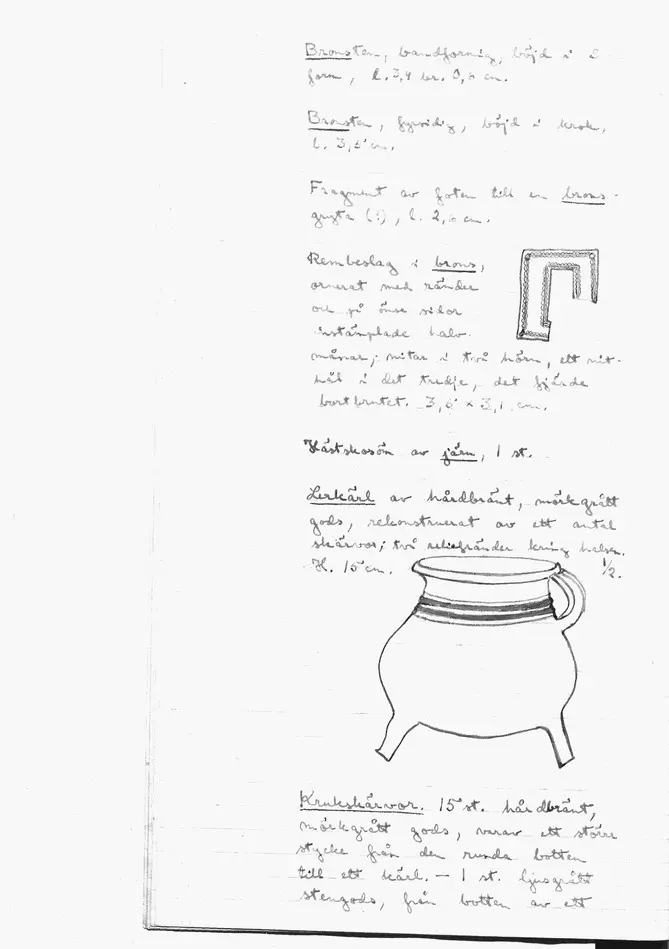 Bronsten, bandformig, böjd i 2
form, l. 3,4 br. 0,6 cm.
Bronsten, fyrsidig, böjd i krok,
l. 3,5 cm.
Fragment av foten till en brons-
gryta (?), l. 2,6 cm.
Rembeslag i brons,
ornerat med ränder
och på ömse sidor
instämplade halv-
månar; nitar i två hörn, ett nit-
hål i det tredje, det fjärde
bortbrutet. 3,6 × 3,1 cm.
Hästskosöm av järn, 1 st.
Lerkärl av hårdbränt, mörkgrått
gods, rekonstruerat av ett antal
skärvor; två reliefränder kring halsen.
H. 15 cm. 1/2.
Krukskärvor. 15 st. hårdbränt,
mörkgrått gods, varav ett större
stycke från den runda botten
till ett kärl. — 1 st. ljusgrått
stengods, från botten av ett